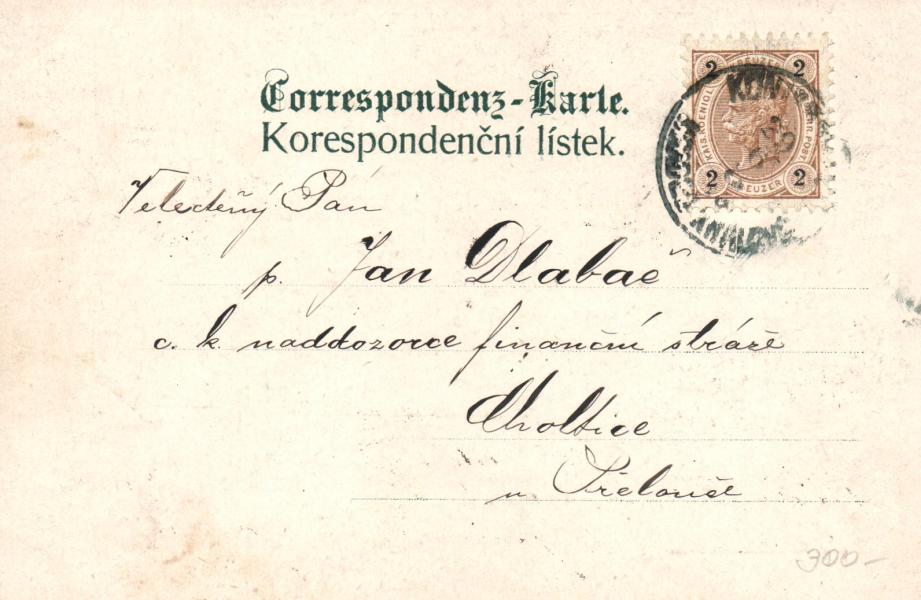 Correspondenz-Karte.
Korespondenční lístek.
2 KREUZER 2
KAIS. KOENIGL.
OESTERR. POST.
2 KREUZER 2
Velectěný Pán
p. Jan Dlabač
c. k. naddozorce finanční stráže
Choltice
u Přelouče
300-